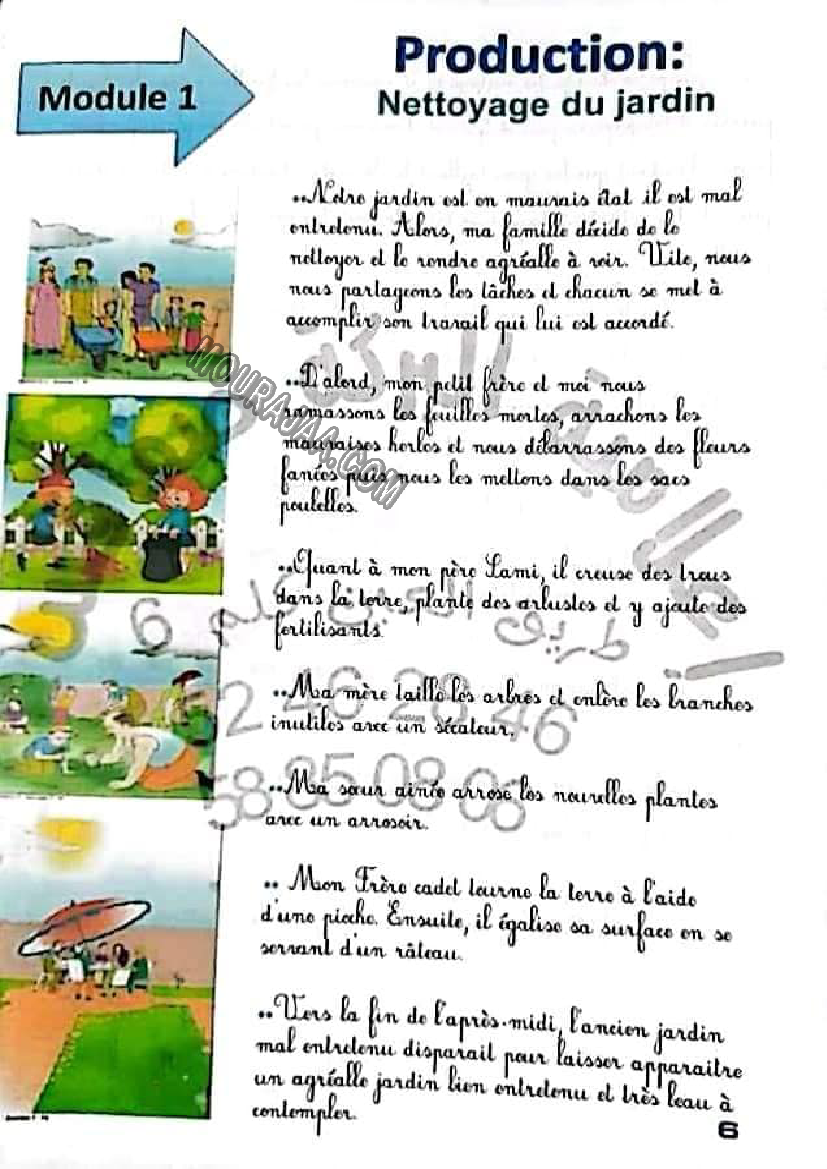 Module 1
Production:
Nettoyage du jardin
..Notre jardin est en mauvais état il est mal
entretenu. Alors, ma famille décide de le
nettoyer et le rendre agréable à voir. Vite, nous
nous partageons les tâches et chacun se met à
accomplir son travail qui lui est accordé.
..D'abord, mon petit frère et moi nous
ramassons les feuilles mortes, arrachons les
mauvaises herbes et nous débarrassons des fleurs
fanées puis nous les mettons dans les sacs
poubelles.
..Quant à mon père Sami, il creuse des trous
dans la terre, plante des arbustes et y ajoute des
fertilisants.
..Ma mère taille les arbres et enlève les branches
inutiles avec un sécateur.
..Ma sœur ainée arrose les nouvelles plantes
avec un arrosoir.
.. Mon Frère cadet tourne la terre à l'aide
d'une pioche. Ensuite, il égalise sa surface en se
servant d'un râteau.
..Vers la fin de l'après-midi, l'ancien jardin
mal entretenu disparait pour laisser apparaitre
un agréable jardin bien entretenu et très beau à
contempler.
6
MOURAJAA.COM
6
52 46 28 46
58 85 08 08